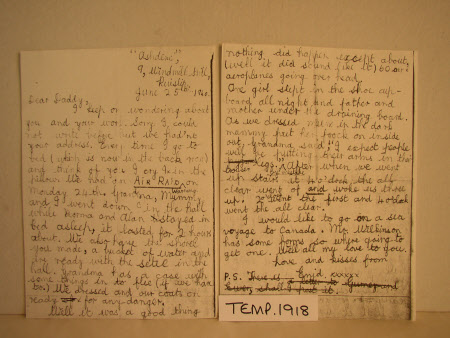 "Ashdene",
9, Windmill Hill,
Ruislip
June 25th, 1940.
Dear Daddy,
I keep on wondering about
you and your worl. Sorry I could
not write before but we had'nt
your address. Every time I go to
bed (which is now in the back room)
and think of you I cry. In the
paper its had an AIR RAID warning
Monday 24th Grandma, Mummy,
and I went down in the hall
while Norma and Alan stayed in
bed asleep, it lasted for 2 hours
about. We also have the shovel
you made, a bucket of water and
and ready with the settee in the
hall. Grandma has a case with
some things in to flee (if we had
to.) We dressed and our coats on
ready for any danger.
Well it was a good thing
nothing did happen except about,
(well it did sound like it) 60 or
aeroplanes going over head.
One girl slept in the shoe cup-
board all night and father and
mother under the draining board.
As we dressed more in the dark
mummy put her frock on inside
out, grandma said "I expect people
will be putting their arms in their
legs. After when we went
up stairs it 4 o'clock the all
clear went of and woke us three
up. 20 went the first and 4 o'clock
went the all clear.
I would like to go on a sea
voyage to Canada. Mr. Wilkinson
has some homs so where going to
get one. Well all my love to you.
Love and kisses from
Enid. xxxxx
P.S. There is a letter to
TEMP.1918